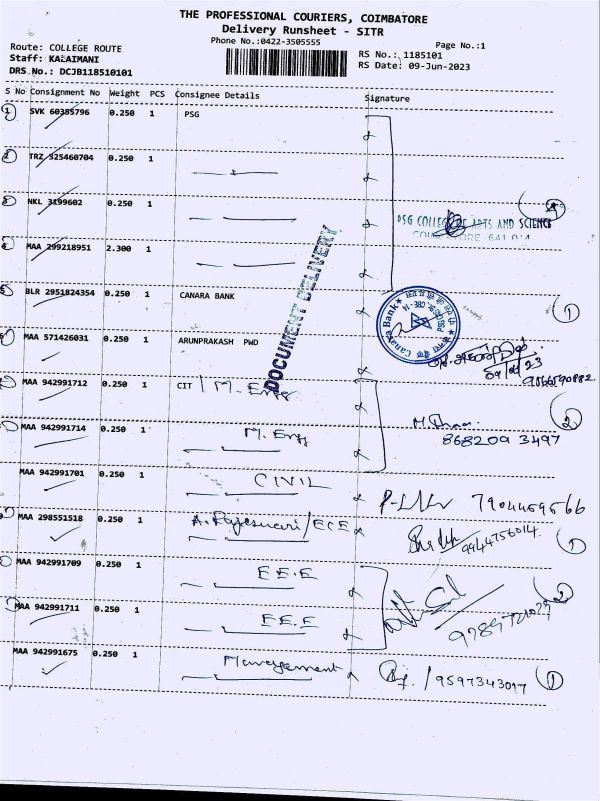 THE PROFESSIONAL COURIERS, COIMBATORE
Delivery Runsheet - SITR
Phone No.:0422-3505555
Page No.:1
Route: COLLEGE ROUTE
RS No.: 1185101
Staff: KALAIMANI
RS Date: 09-Jun-2023
DRS No.: DCJB118510101
S No Consignment No Weight PCS Consignee Details Signature
1 SVK 60385796 0.250 1 PSG
2 TRZ 325460704 0.250 1
3 NKL 3199602 0.250 1
4
PSG COLLEGE OF ARTS AND SCIENCE
COIMBATORE - 641 014
4 MAA 299218951 2.300 1
DOCUMENT DELIVERY
5 BLR 2951824354 0.250 1 CANARA BANK
Canara Bank
1
MAA 571426031 0.250 1 ARUNPRAKASH PWD
MAA 942991712 0.250 1 CIT / M. Engg
2
MAA 942991714 0.250 1 M. Engg
868209 3497
MAA 942991701 0.250 1 CIVIL
7904459566
MAA 298551518 0.250 1 A. Rajeswari / ECE
9944756014
1
MAA 942991709 0.250 1 E.E.E
2
MAA 942991711 0.250 1 E.E.E
MAA 942991675 0.250 1 Management
/ 9597343017 1